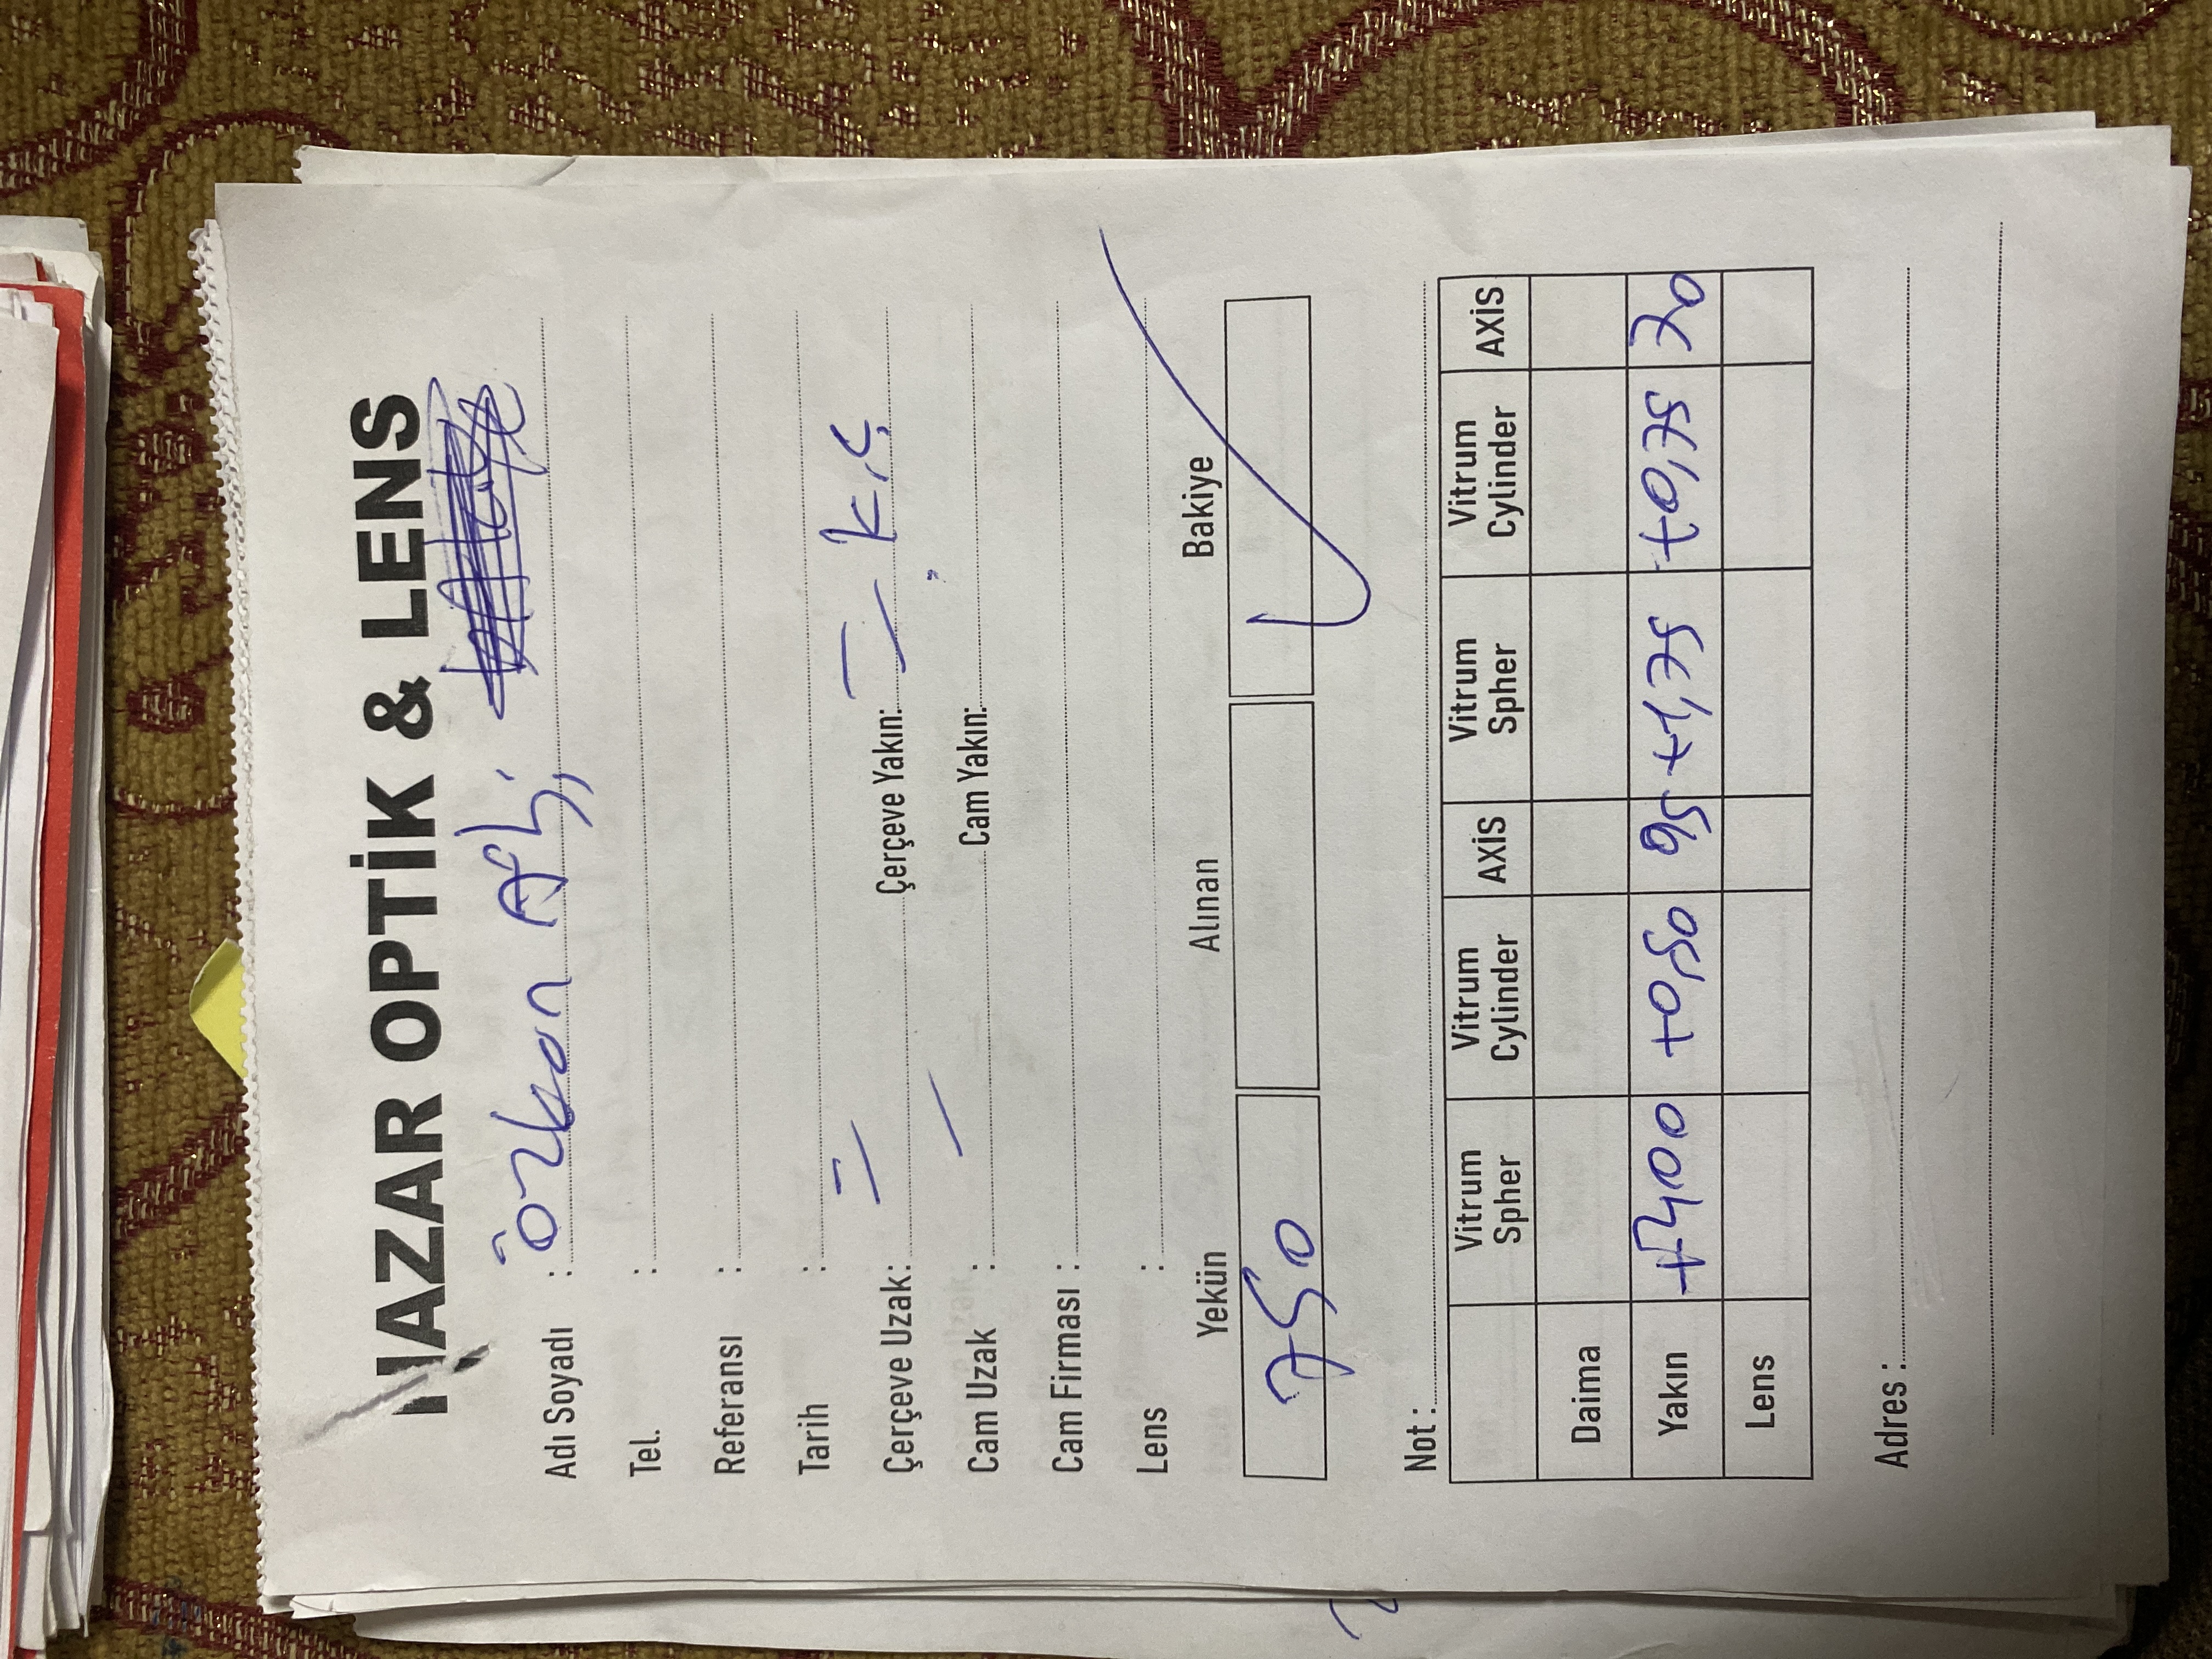 NAZAR OPTİK & LENS
Adı Soyadı : Özkan Abi
Tel. :
Referansı :
Tarih :
Çerçeve Uzak: = Çerçeve Yakın: = K.Ç
Cam Uzak : Cam Yakın:
Cam Firması :
Lens :
Yekün Alınan Bakiye
750 ✓
Not :
Vitrum Spher Vitrum Cylinder AXİS Vitrum Spher Vitrum Cylinder AXİS
Daima
Yakın +0,50 95 +1,75 +0,75 70
Lens
Adres :